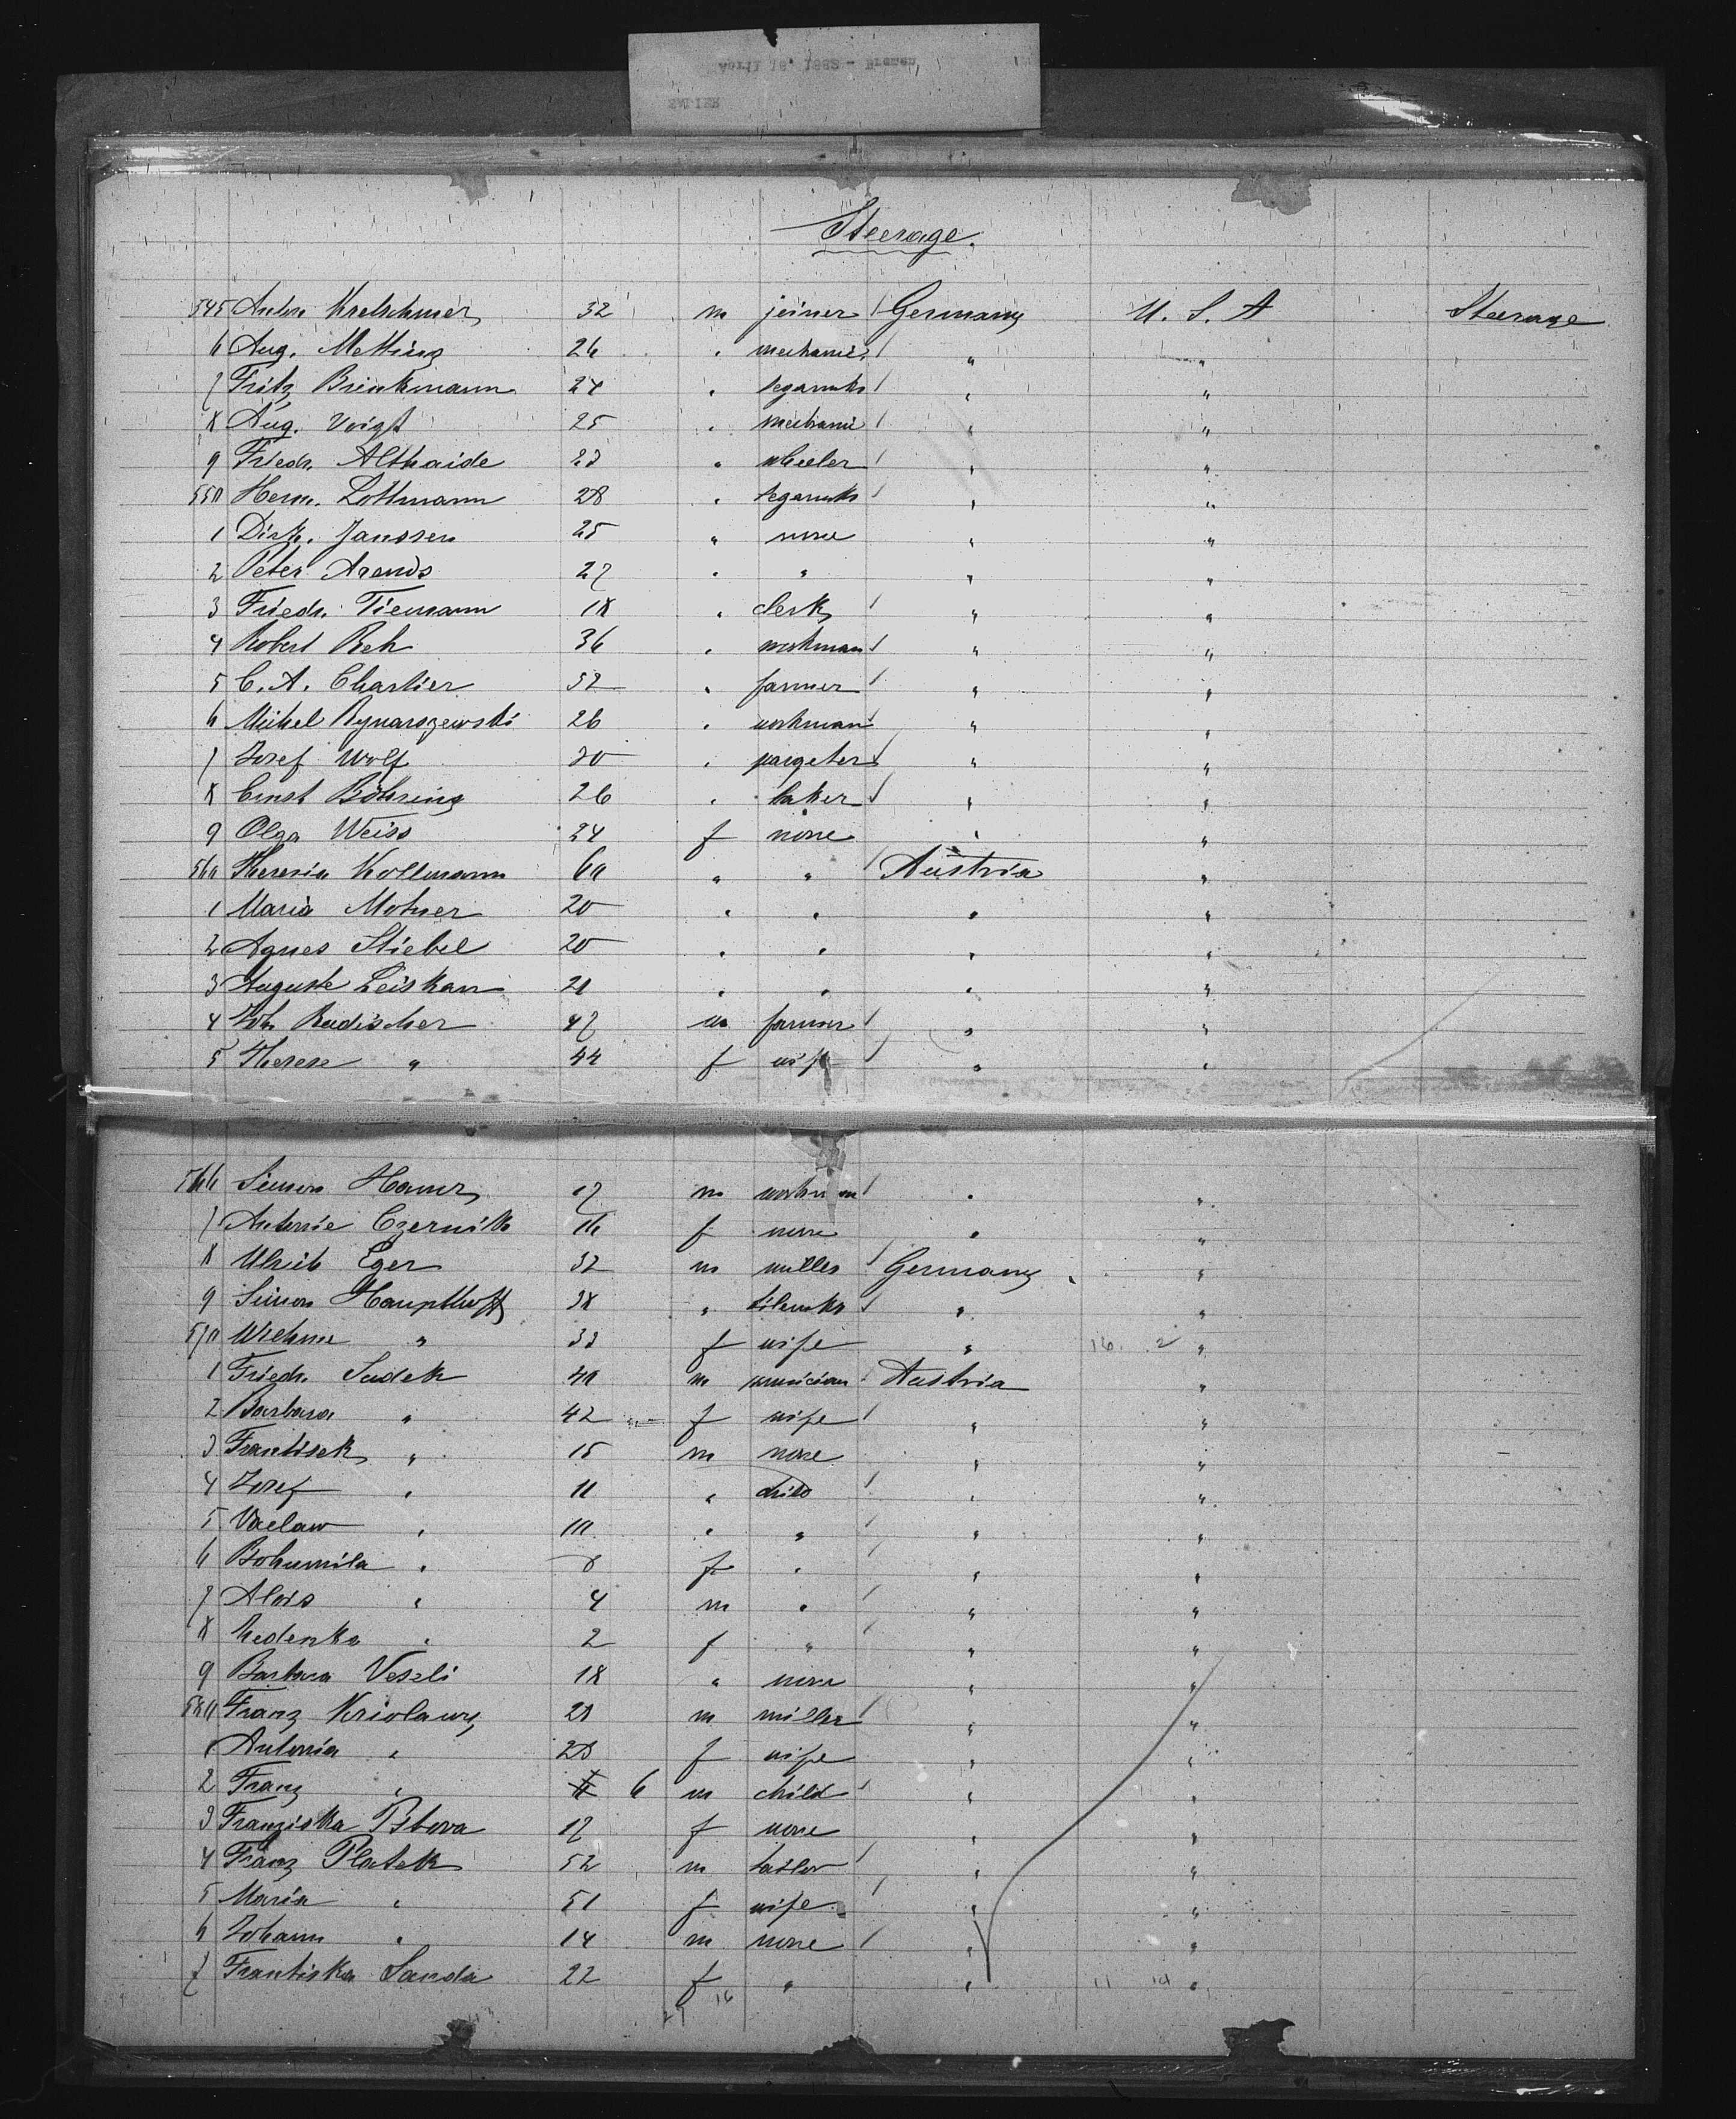 Steerage.
545 Anton Kretschmer 32 m joiner Germany U. S. A Steerage
6 Aug. Metting 26 " mechanic " "
7 Fritz Brinkmann 24 " segarmkr " "
8 Aug. Voigt 25 " mechanic " "
9 Friedr. Althaide 23 " wheeler " "
550 Herm. Lottmann 28 " segarmkr " "
1 Dirk. Janssen 25 " none " "
2 Peter Arends 27 " " " "
3 Friedr. Tiemann 18 " clerk " "
4 Robert Reh 36 " workman " "
5 C. A. Chartier 52 " farmer " "
6 Michel Rynarszewski 26 " workman " "
7 Josef Wolf 30 " pargeter " "
8 Ernst Böhring 26 " baker " "
9 Olga Weiss 24 f none " "
560 Theresia Kollmann 60 " " Austria "
1 Maria Motner 20 " " " "
2 Agnes Stiebel 20 " " " "
3 Auguste Leiskan 21 " " " "
4 Joh. Rudischer 47 m farmer " "
5 Therese " 44 f wife " "
566 Simon 17 m workman " "
7 Antonie Czernik 16 f none " "
8 Ulrich Eger 32 m miller Germany "
9 Simon Haupthoff 38 " " "
570 Wilhme " 33 f wife " 16. 2 "
1 Friedr. Sudek 40 m musician Austria "
2 Barbara " 42 f wife " "
3 Frantisek " 15 m none " "
4 Josef " 11 " child " "
5 Vaclaw " 10 " " " "
6 Bohumila " 8 f " " "
7 Alois " 4 m " " "
8 " 2 f " " "
9 Barbara Veseli 18 " none " "
580 Franz Kriolawy 28 m miller " "
1 Antonia " 28 f wife " "
2 Franz " 6 m child " "
3 Franziska 17 f none " "
4 Franz Platek 52 m tailor " "
5 Maria " 51 f wife " "
6 Johann " 14 m none " "
7 Frantiska Sanda 22 f " " 11 10 "
27 16